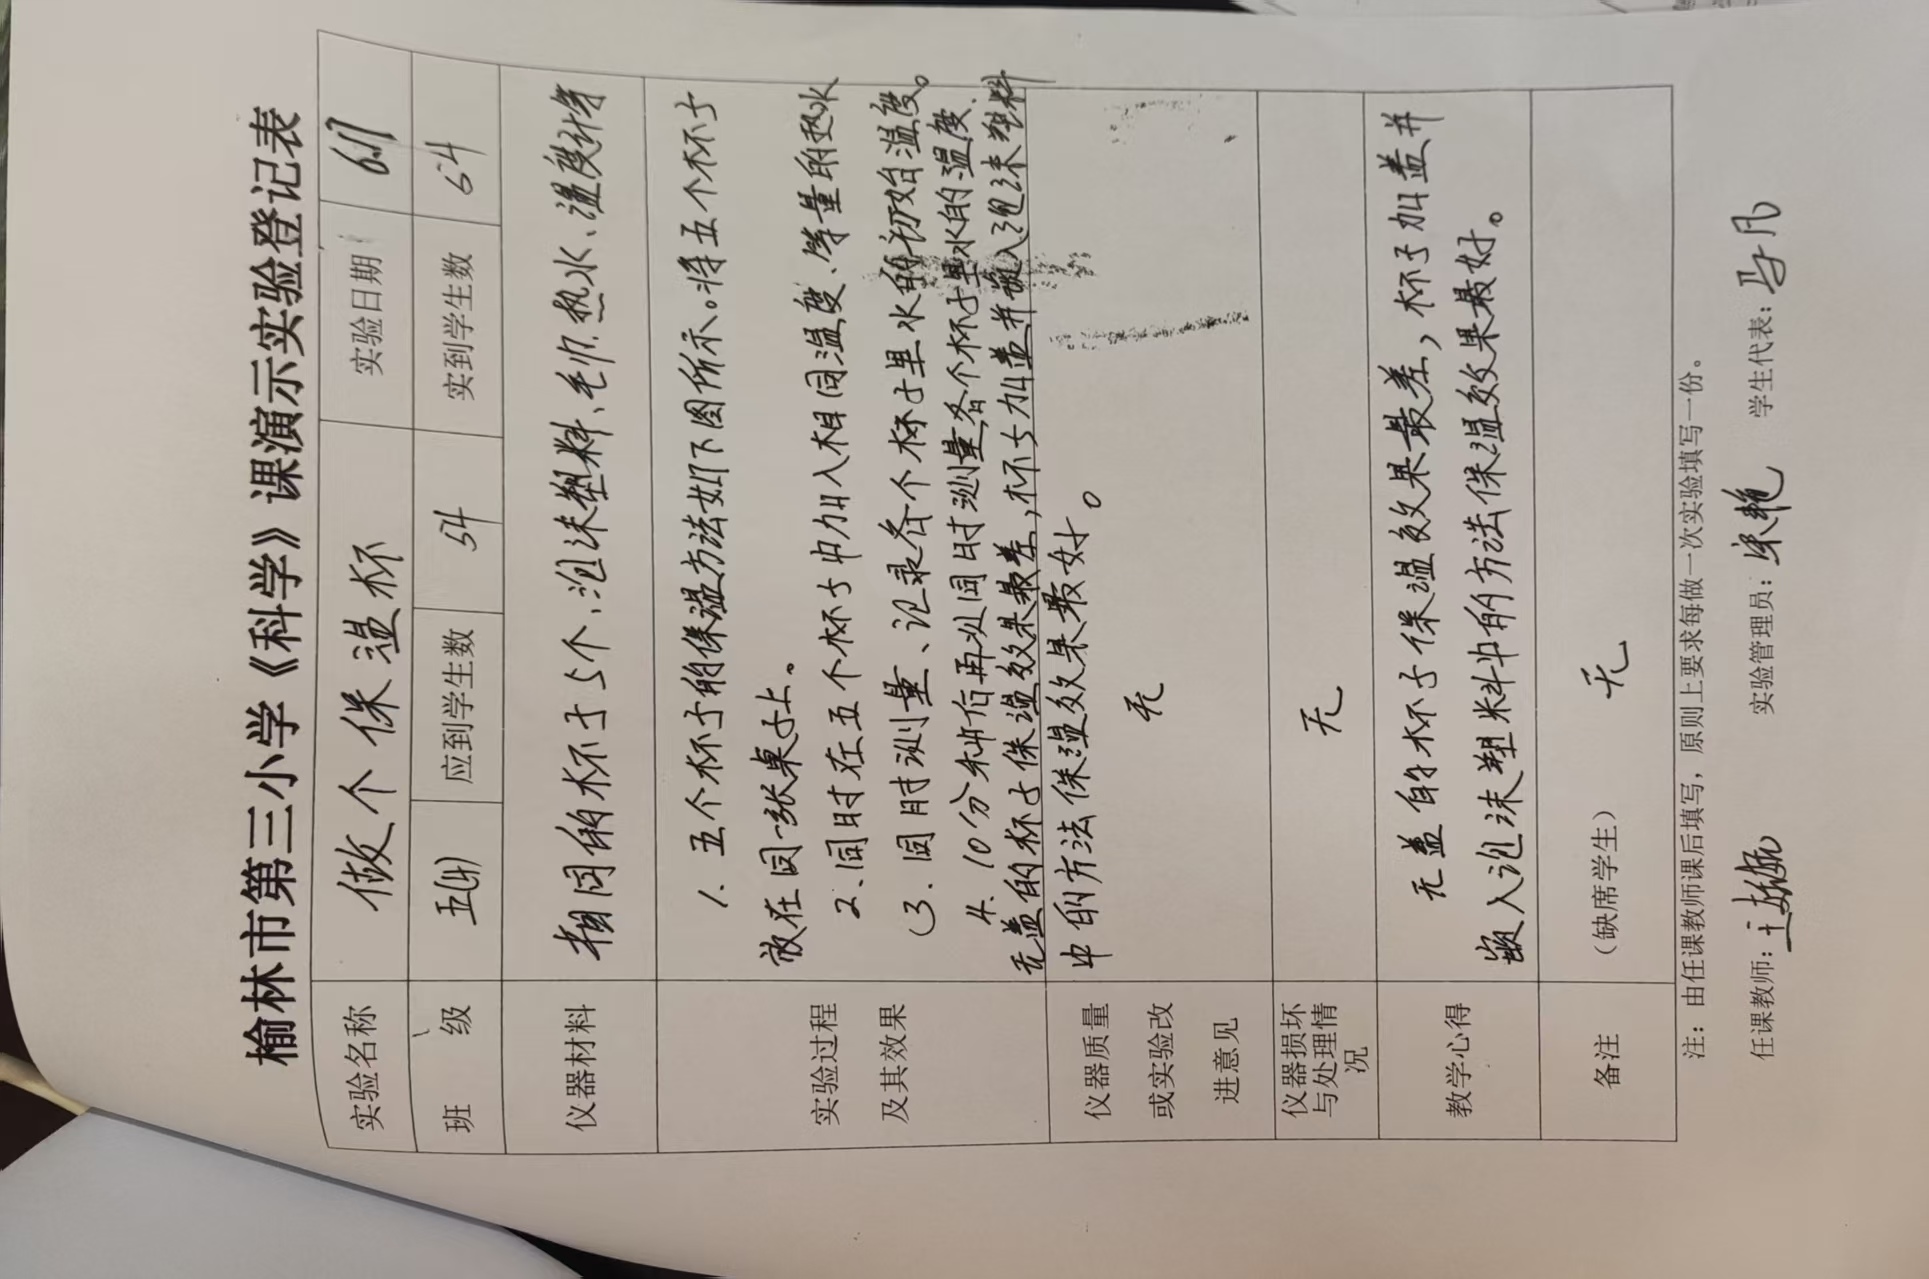 榆林市第三小学《科学》课演示实验登记表
实验名称 做个保温杯 实验日期 6.17
班级 五(4) 应到学生数 54 实到学生数 54
仪器材料 相同的杯子5个、泡沫塑料、毛巾、热水、温度计等
实验过程
及其效果
1. 五个杯子的保温方法如下图所示。将五个杯子
放在同一张桌子上。
2、同时在五个杯子中加入相同温度、等量的热水
3. 同时测量、记录各个杯子里水的初始温度。
4. 10分钟后再次同时测量各个杯子里水的温度.
无盖的杯子保温效果最差,杯子加盖并嵌入泡沫塑料
中的方法保温效果最好。
仪器质量
或实验改
进意见
无
仪器损坏
与处理情
况
无
教学心得
无盖的杯子保温效果最差,杯子加盖并
嵌入泡沫塑料中的方法保温效果最好。
备注 (缺席学生) 无
注:由任课教师课后填写,原则上要求每做一次实验填写一份。
任课教师: 实验管理员: 学生代表: